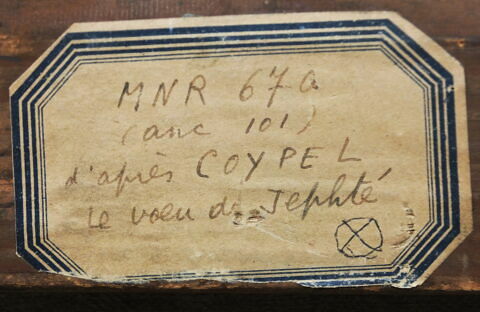 MNR 670
(anc 101)
d'après COYPEL
Le vœu de Jephté